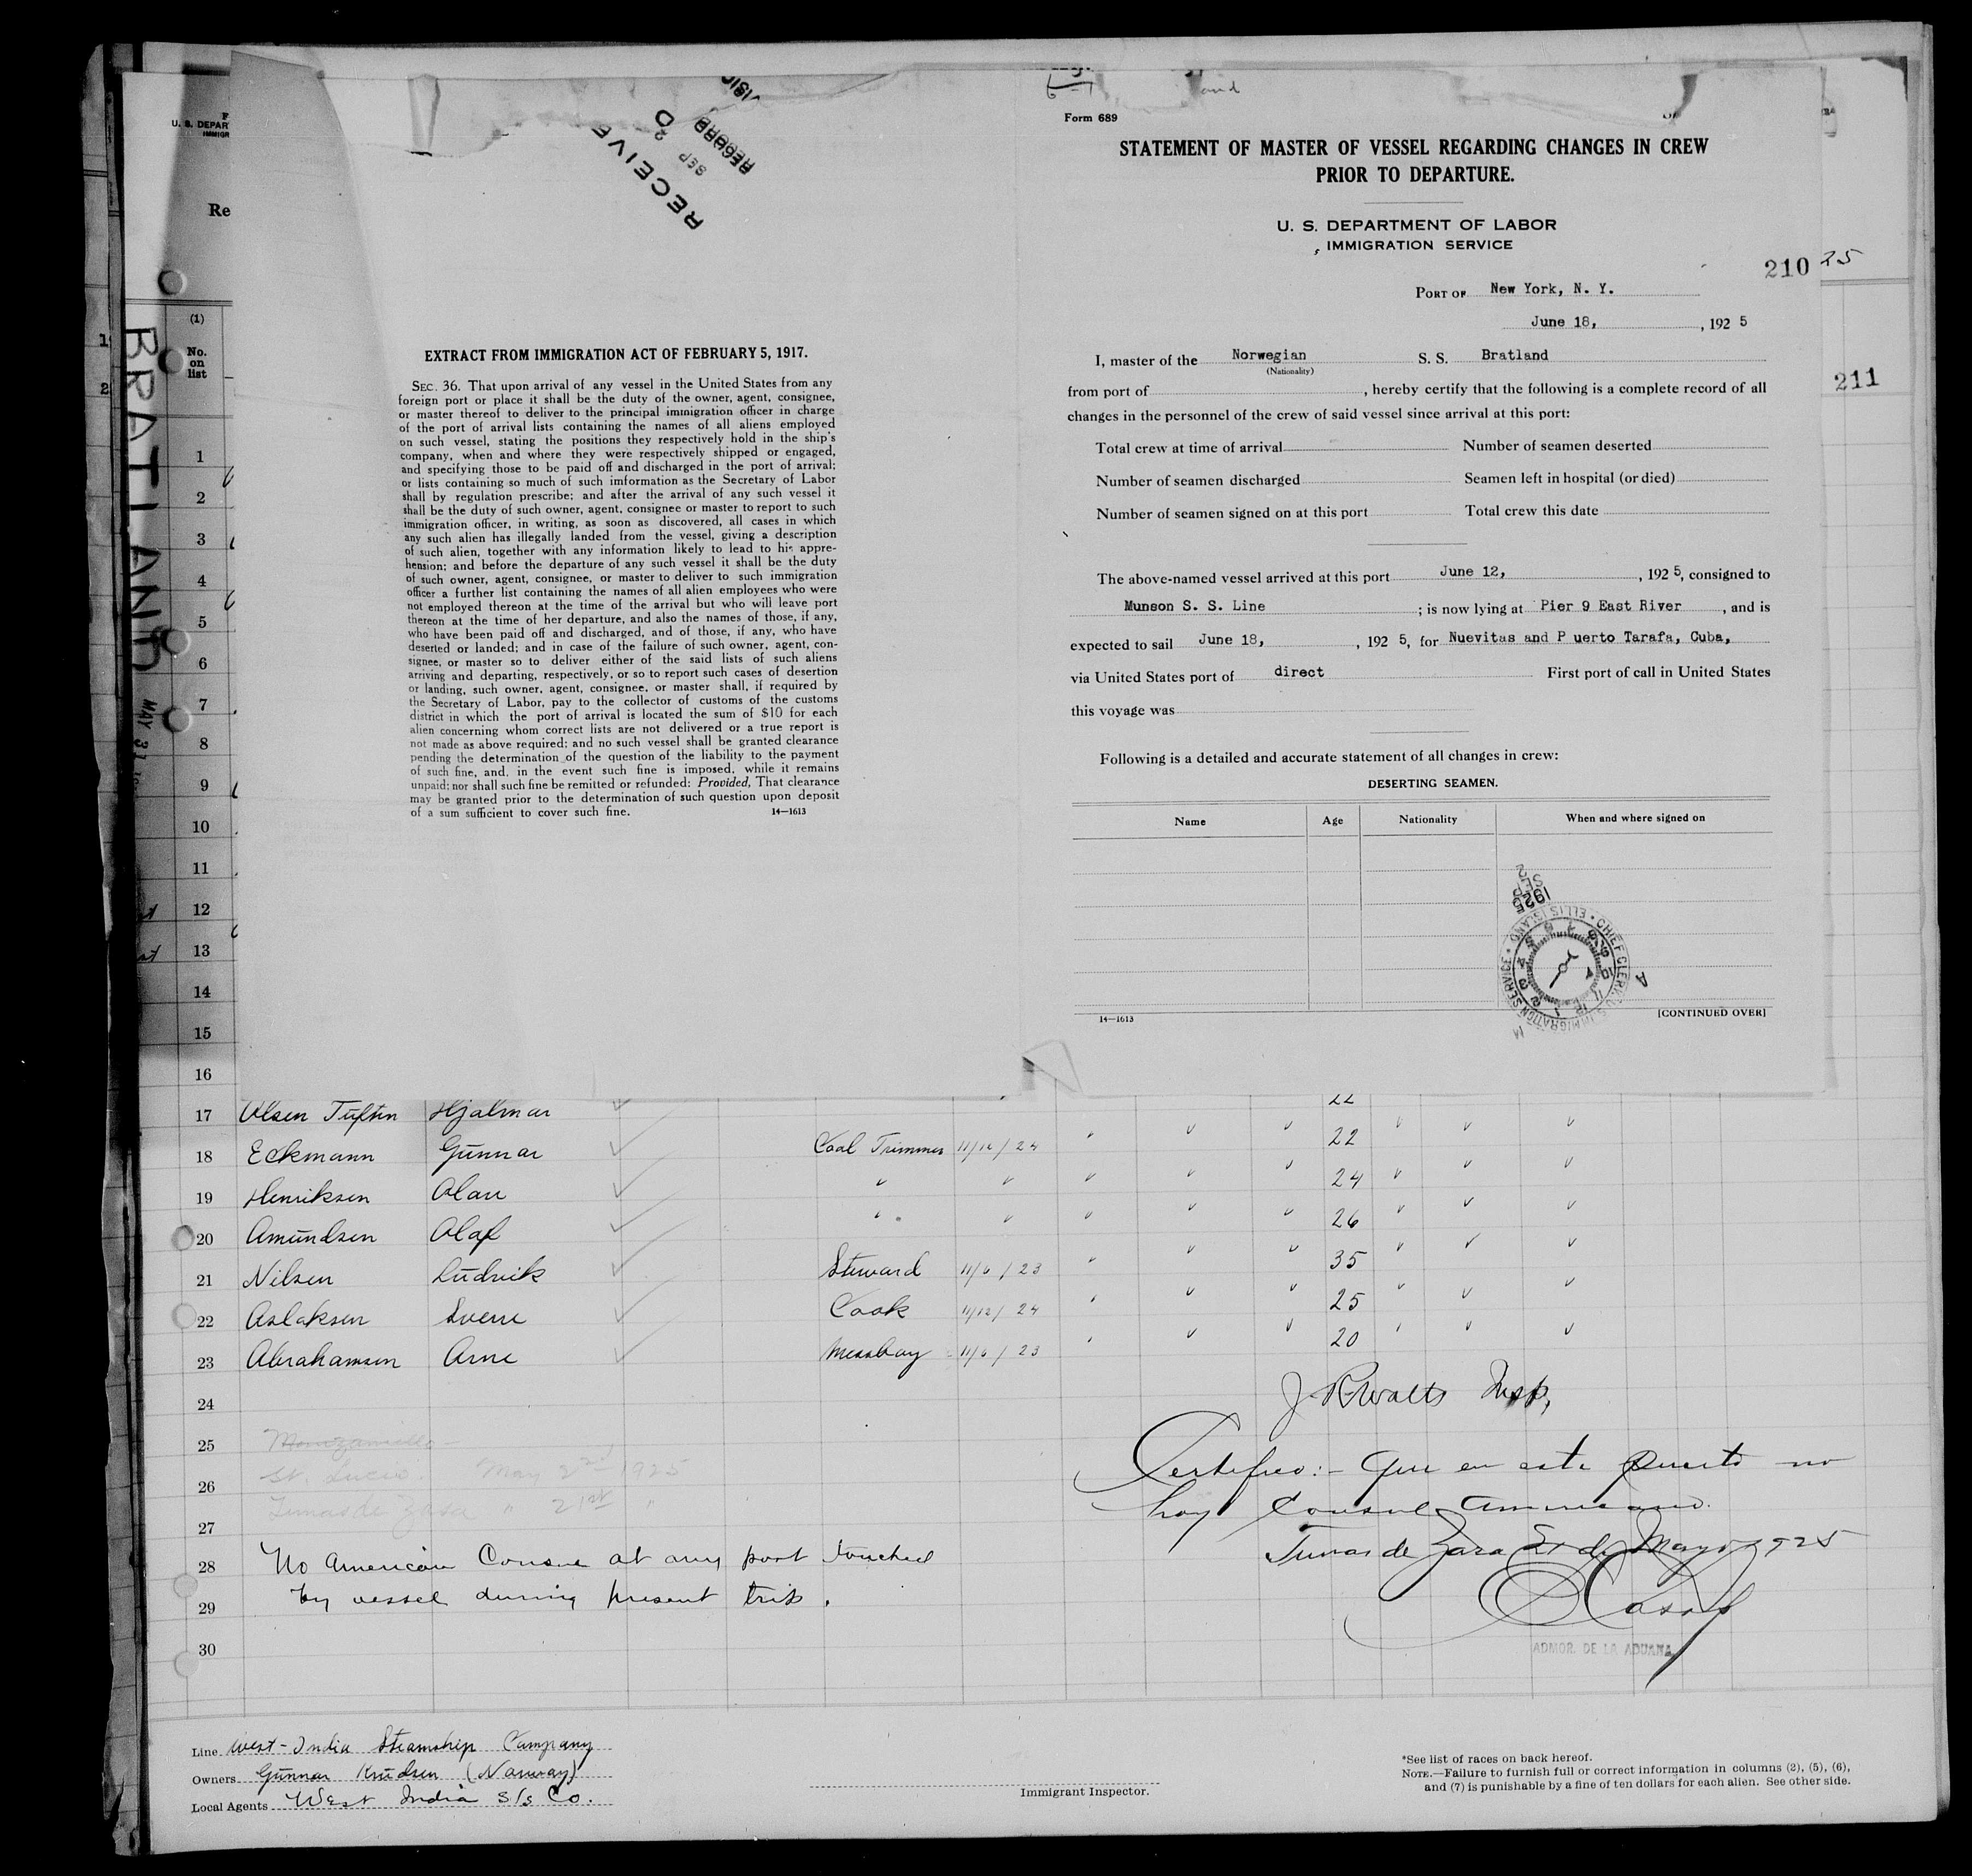 RECEIVED
SEP 2
RECORD
EXTRACT FROM IMMIGRATION ACT OF FEBRUARY 5, 1917.
SEC. 36. That upon arrival of any vessel in the United States from any
foreign port or place it shall be the duty of the owner, agent, consignee,
or master thereof to deliver to the principal immigration officer in charge
of the port of arrival lists containing the names of all aliens employed
on such vessel, stating the positions they respectively hold in the ship's
company, when and where they were respectively shipped or engaged,
and specifying those to be paid off and discharged in the port of arrival;
or lists containing so much of such imformation as the Secretary of Labor
shall by regulation prescribe; and after the arrival of any such vessel it
shall be the duty of such owner, agent, consignee or master to report to such
immigration officer, in writing, as soon as discovered, all cases in which
any such alien has illegally landed from the vessel, giving a description
of such alien, together with any information likely to lead to his appre-
hension; and before the departure of any such vessel it shall be the duty
of such owner, agent, consignee, or master to deliver to such immigration
officer a further list containing the names of all alien employees who were
not employed thereon at the time of the arrival but who will leave port
thereon at the time of her departure, and also the names of those, if any,
who have been paid off and discharged, and of those, if any, who have
deserted or landed; and in case of the failure of such owner, agent, con-
signee, or master so to deliver either of the said lists of such aliens
arriving and departing, respectively, or so to report such cases of desertion
or landing, such owner, agent, consignee, or master shall, if required by
the Secretary of Labor, pay to the collector of customs of the customs
district in which the port of arrival is located the sum of $10 for each
alien concerning whom correct lists are not delivered or a true report is
not made as above required; and no such vessel shall be granted clearance
pending the determination of the question of the liability to the payment
of such fine, and, in the event such fine is imposed, while it remains
unpaid; nor shall such fine be remitted or refunded: Provided, That clearance
may be granted prior to the determination of such question upon deposit
of a sum sufficient to cover such fine. 14—1613
Form 689
STATEMENT OF MASTER OF VESSEL REGARDING CHANGES IN CREW
PRIOR TO DEPARTURE.
U. S. DEPARTMENT OF LABOR
IMMIGRATION SERVICE
210 25
PORT OF New York, N. Y.
June 18, , 192 5
I, master of the Norwegian S. S. Bratland
(Nationality)
211
from port of , hereby certify that the following is a complete record of all
changes in the personnel of the crew of said vessel since arrival at this port:
Total crew at time of arrival Number of seamen deserted
Number of seamen discharged Seamen left in hospital (or died)
Number of seamen signed on at this port Total crew this date
The above-named vessel arrived at this port June 12, , 192 5, consigned to
Munson S. S. Line ; is now lying at Pier 9 East River , and is
expected to sail June 18, , 192 5, for Nuevitas and P uerto Tarafa, Cuba,
via United States port of direct First port of call in United States
this voyage was
Following is a detailed and accurate statement of all changes in crew:
DESERTING SEAMEN.
Name Age Nationality When and where signed on
1925
SEP 2
CHIEF CLERK U.S. IMMIGRATION SERVICE • ELLIS ISLAND
14—1613 [CONTINUED OVER]
U. S. DEPAR
IMMIGR
Re
BRATLAND
MAY 31
(1)
No.
on
list
1
2
3
4
5
6
7
8
9
10
11
12
13
14
15
16
17 Olsen Tuften Hjalmar 22
18 Eckmann Gunnar Coal Trimmer 11/12/24 " " " 22 " " "
19 Henriksen Alan " " " " " 24 " " "
20 Amundsen Olaf " " " " " 26 " " "
21 Nilsen Ludvik Steward 11/6/23 " " " 35 " " "
22 Aslaksen Sverre Cook 11/12/24 " " " 25 " " "
23 Abrahamsen Arne Messboy 11/6/23 " " " 20 " " "
24
J R Walts Insp.
25 Manzanillo
26 St. Lucia. May 2nd 1925
27 Tunas de Zaza " 21st "
28 No American Consul at any port touched
29 by vessel during present trip.
30
Certifico:- Que en este Puerto no
hay Consul Americano.
Tunas de Zaza 21 de Mayo 1925
ADMOR. DE LA ADUANA
Line West-India Steamship Company
Owners Gunnar Knudsen (Norway)
Local Agents West India S/S Co.
Immigrant Inspector.
*See list of races on back hereof.
NOTE.—Failure to furnish full or correct information in columns (2), (5), (6),
and (7) is punishable by a fine of ten dollars for each alien. See other side.